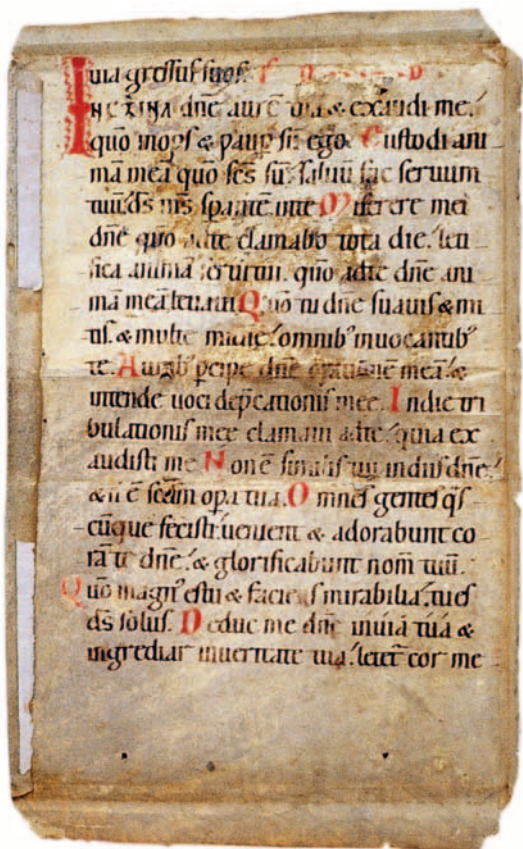 in uia gressus suos.
INCLINA dñe aurē tuā & exaudi me.
quō inops & paup sū ego. Custodi ani
mā meā quō scs sū: saluū fac seruum
tuū ds ms sparitē inte. Miserere mei
dñe quō adte clamabo tota die. leti
fica animā serui tui. quō adte dñe ani
mā meā leuaui. Quō tu dñe suauis & mi
tis. & multe mīdie omnib' inuocantib'
te. Aurib' pcipe dñe orationē meā. &
intende uoci depcationis mee. In die tri
bulationis mee clamaui adte quia ex
audisti me Non ē similis tui in diis dñe.
& n ē scdm opa tua. Omnes gentes qs
cūque fecisti uenient & adorabunt co
rā te dñe. & glorificabunt nom̄ tuū.
Quō magn' es tu & faciens mirabilia. tu es
ds solus. Deduc me dñe in uiā tuā &
ingrediar in ueritate tua. letet cor me